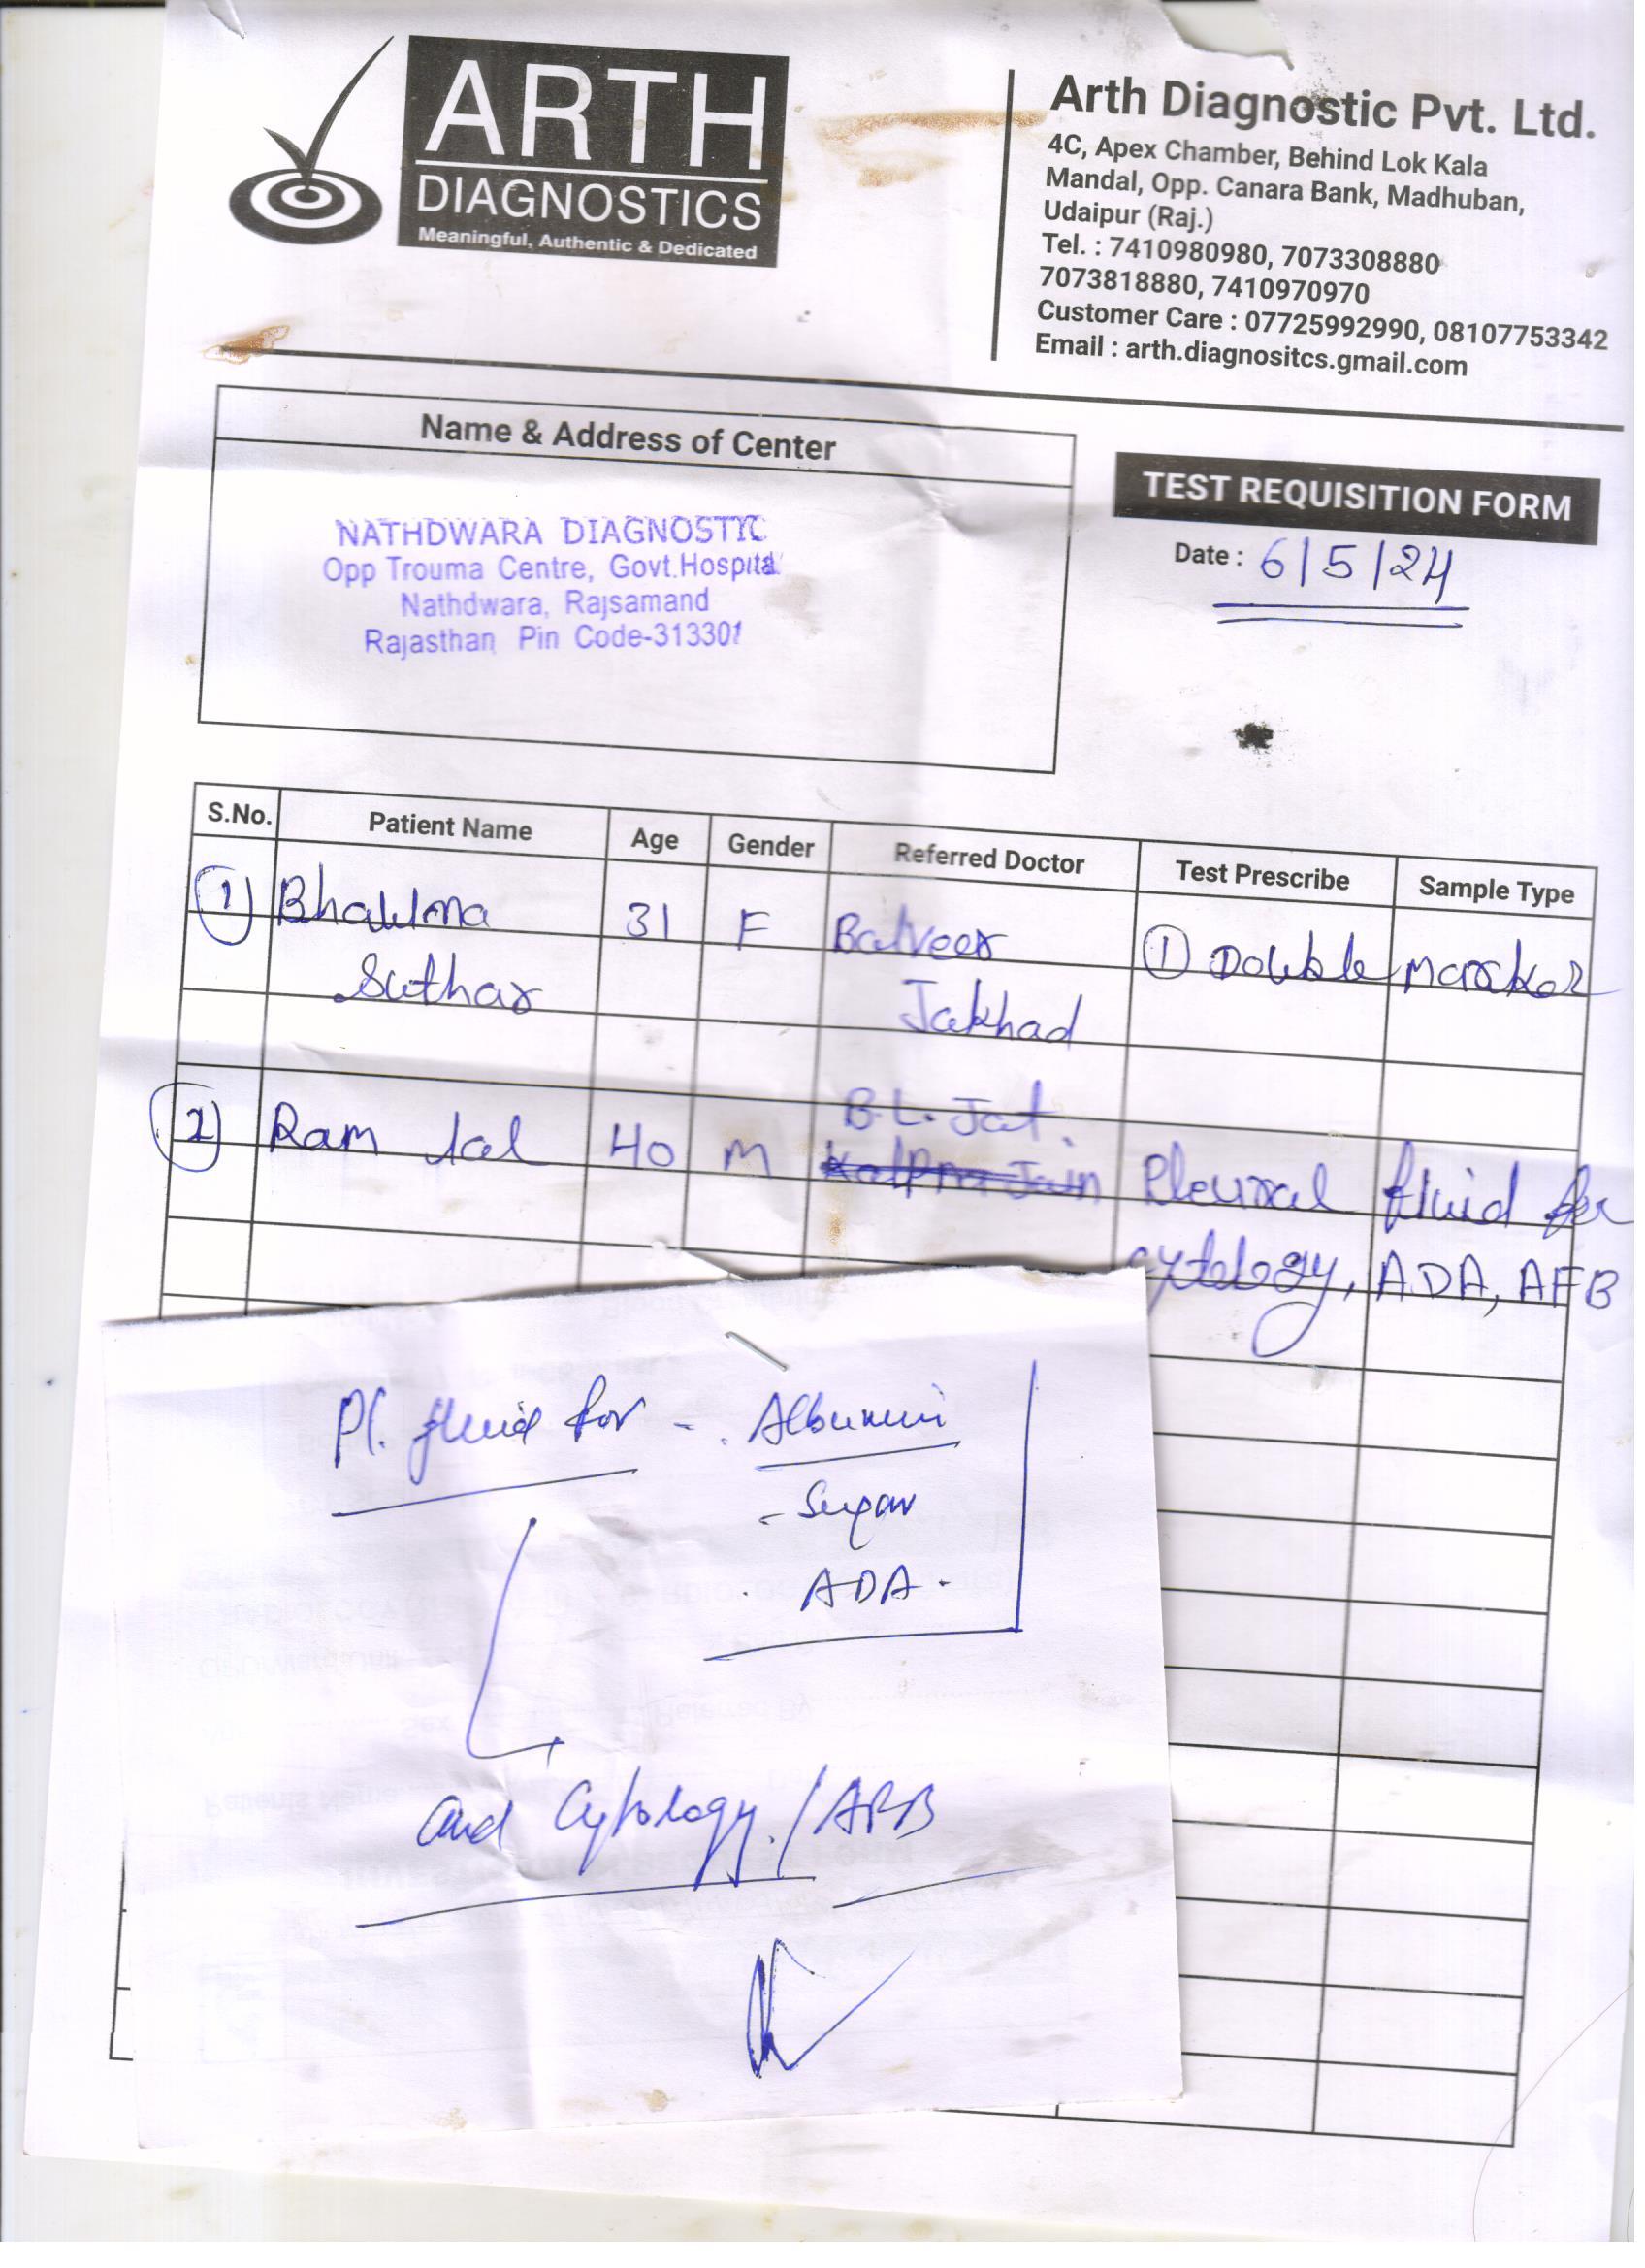 ARTH
DIAGNOSTICS
Meaningful, Authentic & Dedicated
Arth Diagnostic Pvt. Ltd.
4C, Apex Chamber, Behind Lok Kala
Mandal, Opp. Canara Bank, Madhuban,
Udaipur (Raj.)
Tel. : 7410980980, 7073308880
7073818880, 7410970970
Customer Care : 07725992990, 08107753342
Email : arth.diagnositcs.gmail.com
Name & Address of Center
NATHDWARA DIAGNOSTIC
Opp Trouma Centre, Govt.Hospital
Nathdwara, Rajsamand
Rajasthan Pin Code-313301
TEST REQUISITION FORM
Date : 6/5/24
S.No. Patient Name Age Gender Referred Doctor Test Prescribe Sample Type
1) Bhawna 31 F Balveer 1 Double marker
Suthar Jakhad
B.L. Jat.
2) Ram Lal 40 M Pleural fluid for
cytology, ADA, AFB
Pl. fluid for - Albumin
- Sugar
ADA
and Cytology / AFB